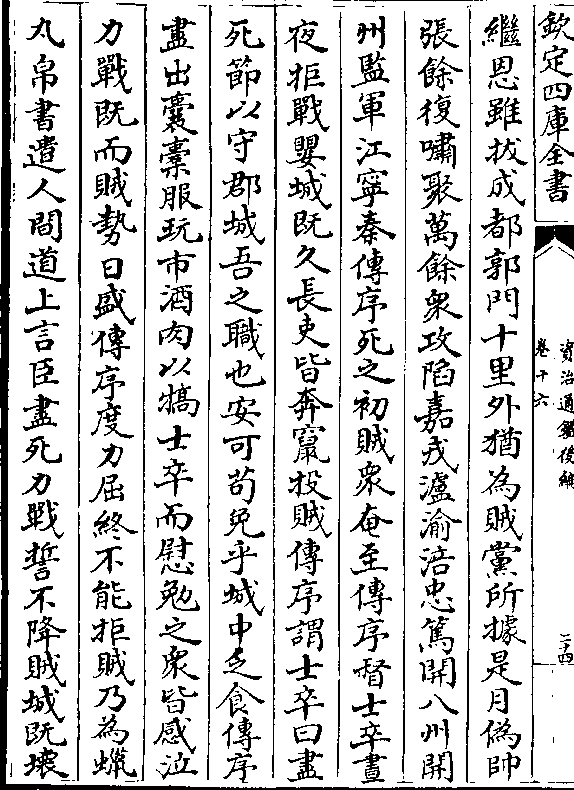 欽定四庫全書
資治通鑑後編
卷十六
二十四
繼恩雖拔成都郭門十里外猶為賊黨所據是月偽帥
張餘復嘯聚萬餘衆攻陷嘉戎瀘渝涪忠萬開八州開
州監軍江寧秦傳序死之初賊衆奄至傳序督士卒晝
夜拒戰嬰城既久長吏皆奔竄投賊傳序謂士卒曰盡
死節以守郡城吾之職也安可苟免乎城中乏食傳序
盡出囊橐服玩市酒肉以犒士卒而慰勉之衆皆感泣
力戰既而賊勢日盛傳序度力屈終不能拒賊乃為蠟
丸帛書遣人間道上言臣盡死力戰誓不降賊城既壞